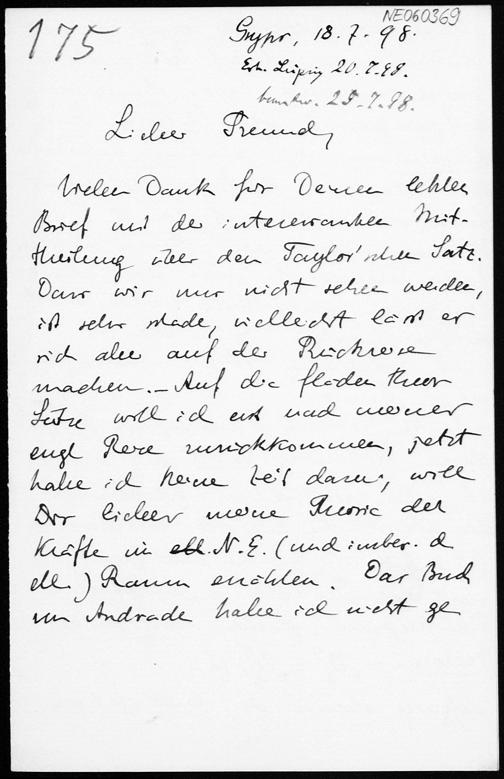 NE060369
175
Grypsw, 18.7.98.
Erh. Leipzig 20.7.98.
beantw. 25.7.98.
Lieber Freund,
Vielen Dank für Deinen letzten
Brief mit der interessanten Mit-
theilung über den Taylor'schen Satz.
Dass wir uns nicht sehen werden,
ist sehr schade, vielleicht lässt es
sich aber auf der Rückreise
machen. – Auf die flächentheor
Sätze will ich erst nach meiner
engl Reise zurückkommen, jetzt
habe ich keine Zeit dazu, will
Dir lieber meine Theorie der
Kräfte im ell. N. E. (und insbes. d
ell.) Raum erzählen. Das Buch
von Andrade habe ich nicht ge